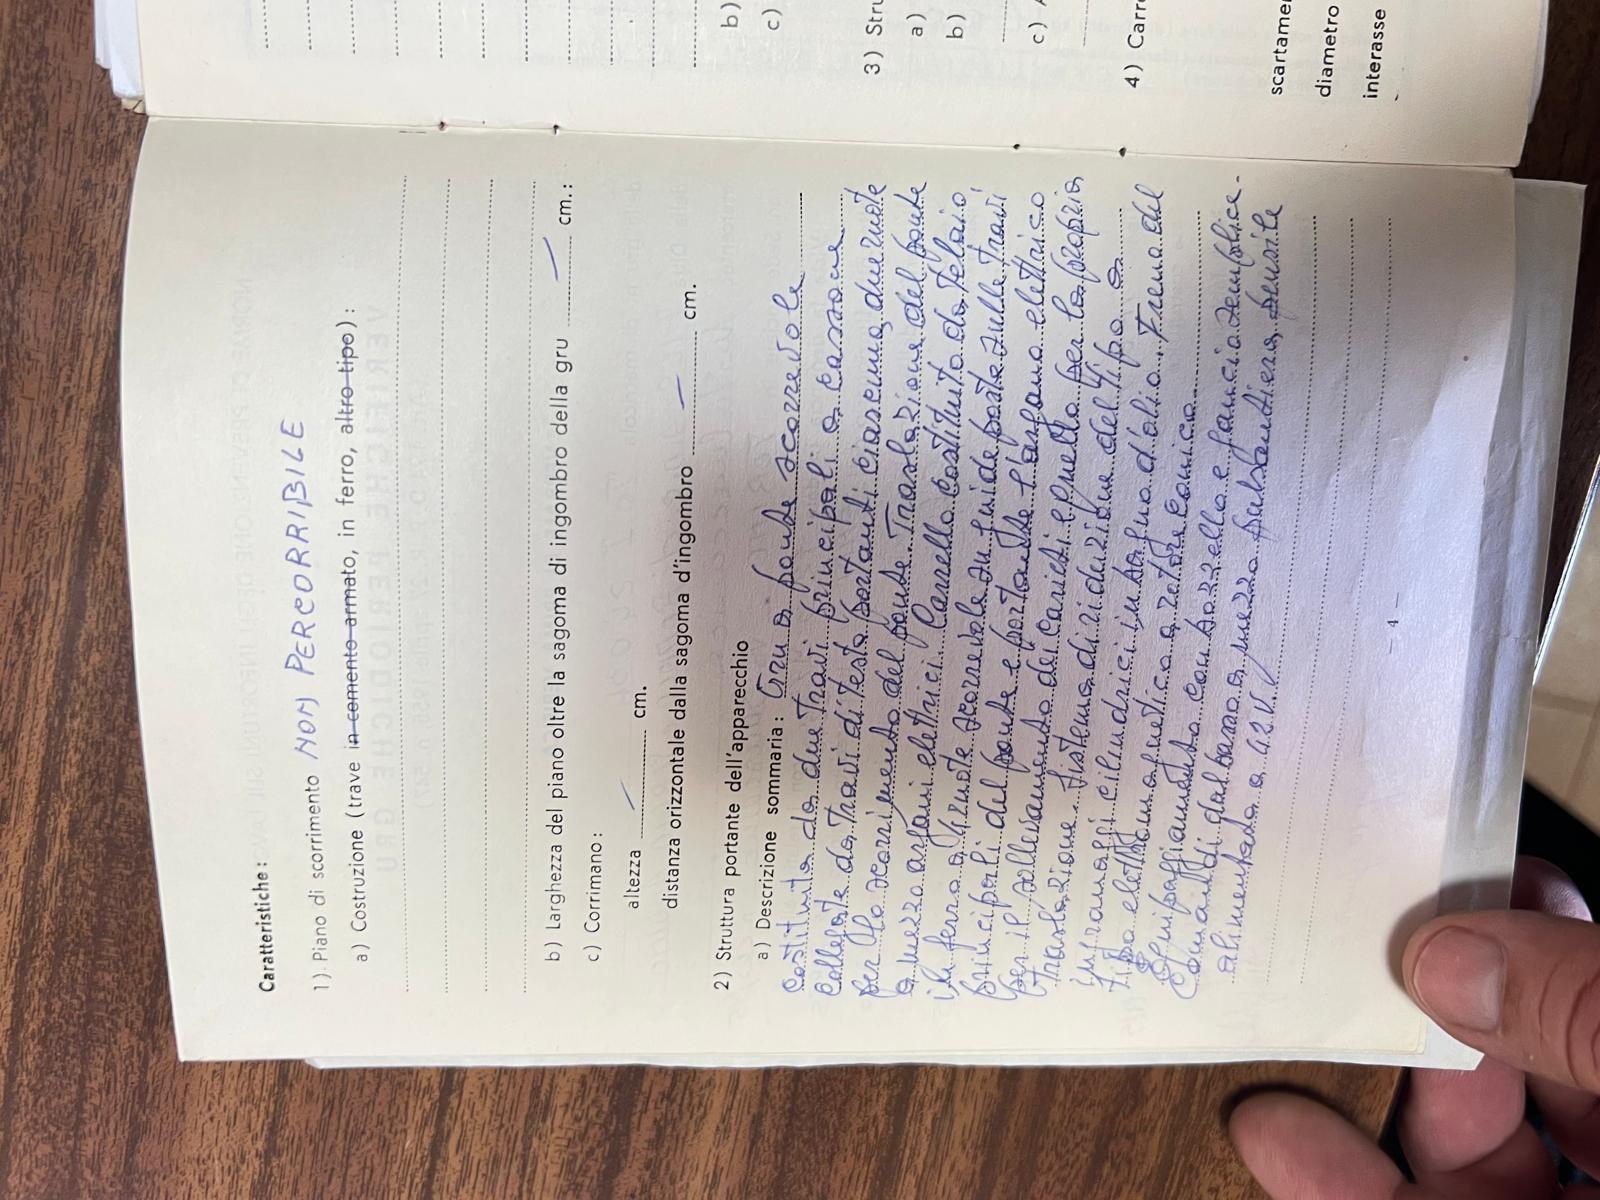 Caratteristiche:
1) Piano di scorrimento NON PERCORRIBILE
a) Costruzione (trave in cemento armato, in ferro, altro tipo):
b) Larghezza del piano oltre la sagoma di ingombro della gru — cm.:
c) Corrimano:
altezza — cm.
distanza orizzontale dalla sagoma d'ingombro — cm.
2) Struttura portante dell'apparecchio
a) Descrizione sommaria: Gru a ponte scorrevole
costituita da due travi principali a cassone
collegate da travi di testa portanti ciascuna due ruote
per lo scorrimento del ponte. Traslazione del ponte
a mezzo argani elettrici. Carrello costituito da telaio
in ferro a 4 ruote scorrevole su guide poste sulle travi
principali del ponte e portante l'argano elettrico
per il sollevamento dei carichi e quello per la propria
traslazione. Sistema di riduzione del tipo a
ingranaggi cilindrici in bagno d'olio. Freno del
tipo elettromagnetico a rotore conico.
Equipaggiamento con bozzello e gancio semplice.
Comandi dal basso a mezzo pulsantiera pensile
alimentata a 42 V.
— 4 —
b)
c)
3) Stru
a)
b)
c)
4) Carr
scartame
diametro
interasse